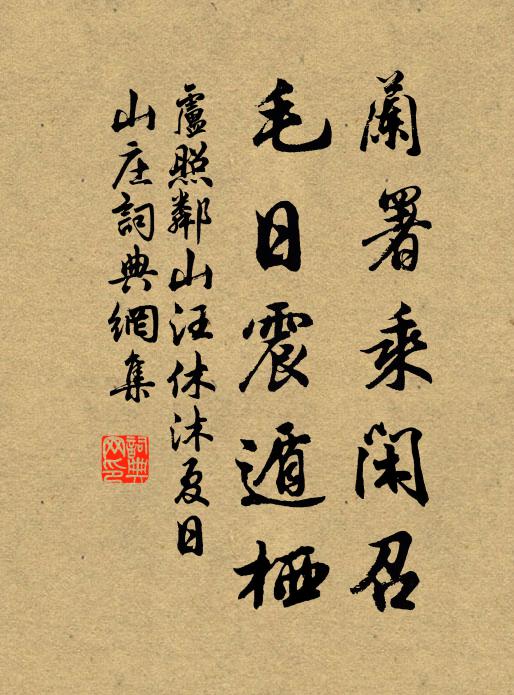 蘭署乘閑召
毛日震遁栖
盧照鄰山汪休沐夏日
山庄詞典網集
詞典
网印